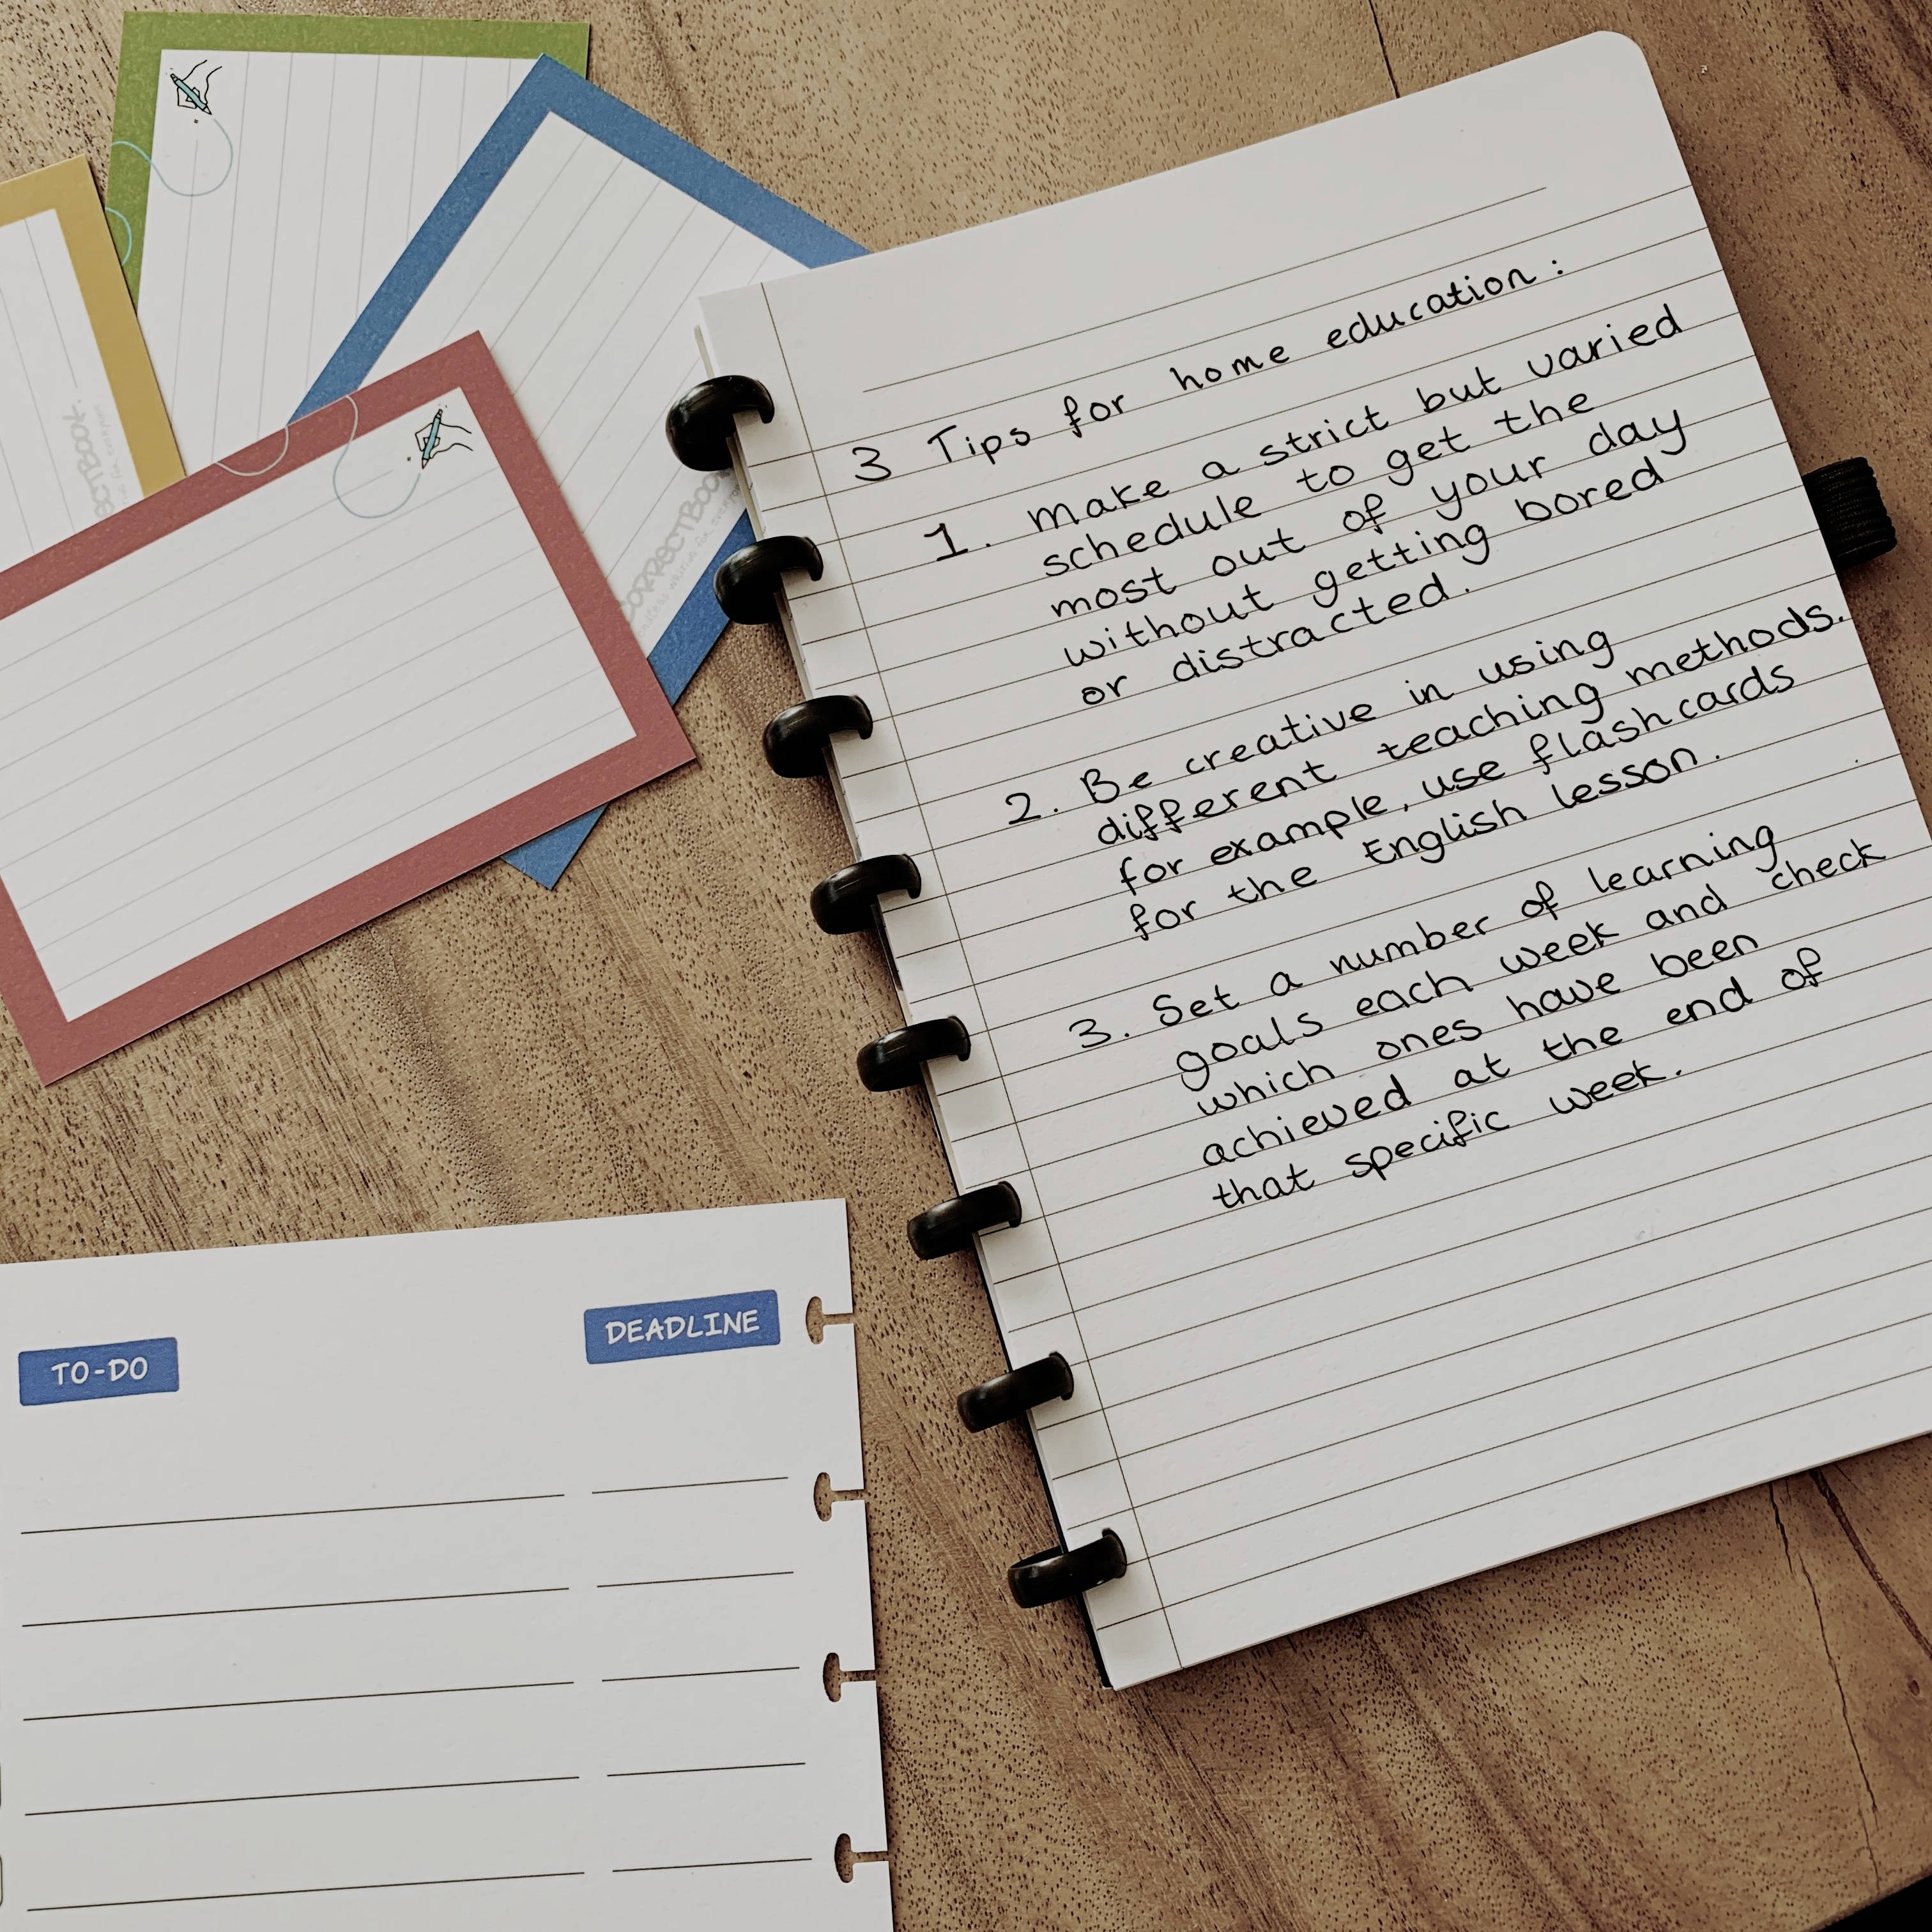 3 Tips for home education:
1. Make a strict but varied
schedule to get the
most out of your day
without getting bored
or distracted.
2. Be creative in using
different teaching methods.
for example, use flashcards
for the English lesson.
3. Set a number of learning
goals each week and check
which ones have been
achieved at the end of
that specific week.
TO-DO
DEADLINE
CORRECTBOOK